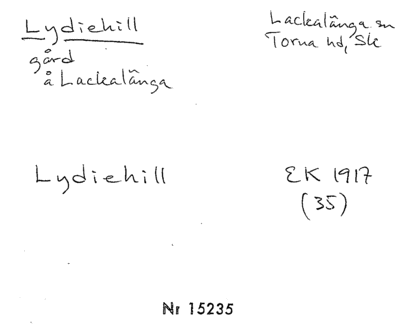 Lydiehill
gård
å Lackalänga
Lackalänga sn
Torna hd, Sk
Lydiehill
EK 1917
(35)
Nr 15235